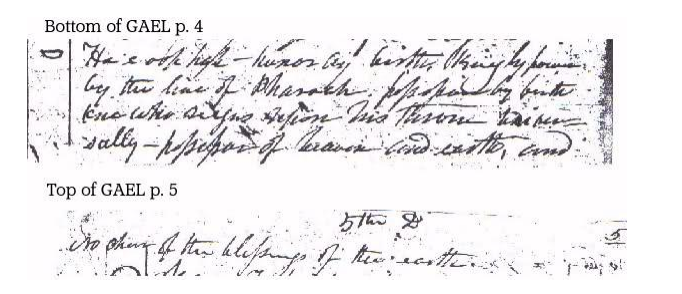 Bottom of GAEL p. 4
Ho e oop hah – honor by birth, kingly power
by the line of Pharaoh. possession by birth
one who reigns upon his throne univer-
sally – possessor of heaven and earth, and
Top of GAEL p. 5
5th D
5
of the blessings of the earth